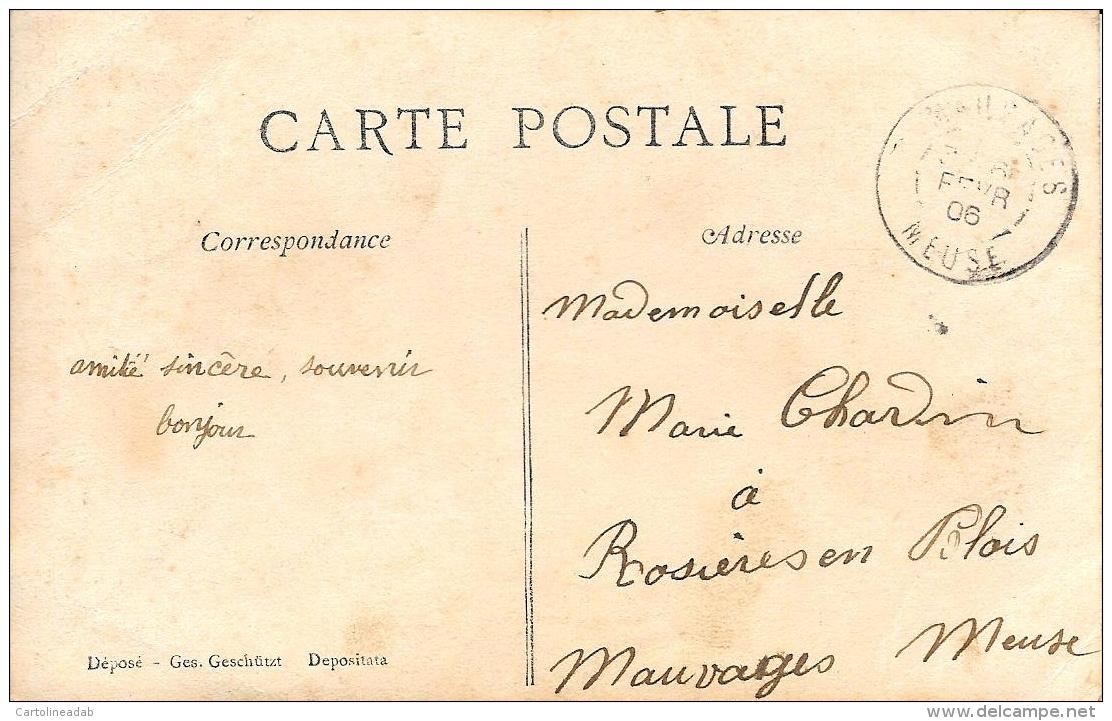 CARTE POSTALE
Correspondance
amitié sincère, souvenir
bonjour
Adresse
Mademoiselle
Marie Chardin
à
Rosières en Blois
Mauvages Meuse
MAUVAGES
FEVR
06
MEUSE
Déposé - Ges. Geschützt Depositata
© Cartolineadab
delcampe.net